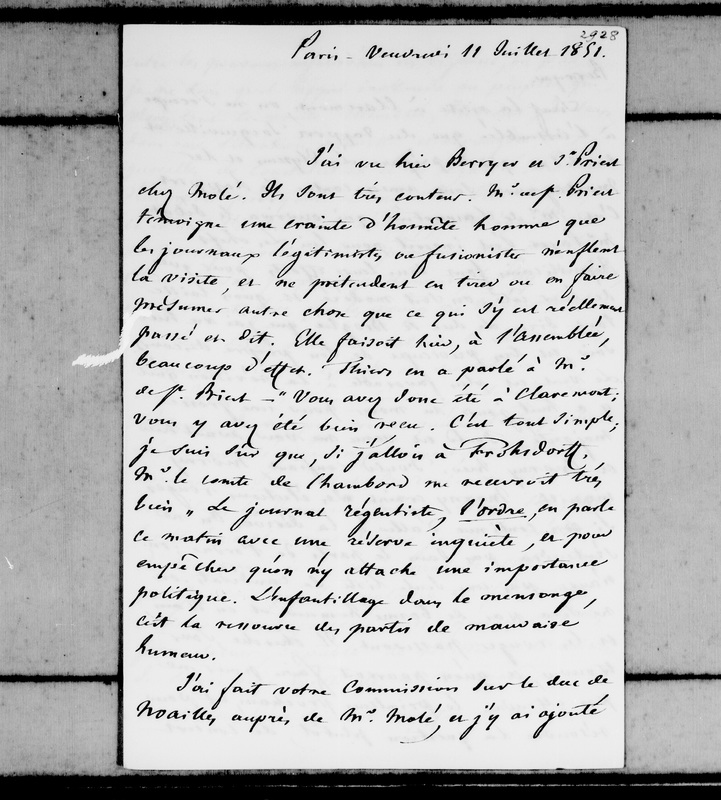 2928
Paris - Vendredi 11 Juillet 1851.
J'ai vu hier Berryer et St Priest
chez Molé. Ils sont très contens. Mr de St Priest
témoigne une crainte d'honnête homme que
les journaux légitimistes ou fusionistes n'enflent
la visite, et ne prétendent en tirer ou en faire
présumer autre chose que ce qui s'y est réellement
passé et dit. Elle faisoit hier, à l'Assemblée,
beaucoup d'effet. Thiers en a parlé à Mr
de St Priest - "Vous avez donc été à Claremont;
vous y avez été bien reçu. C'est tout simple;
je suis sûr que, si j'allois à Frohsdorff,
Mr le comte de Chambord me recevroit très
bien" Le journal régentiste, l'ordre, en parle
ce matin avec une réserve inquiète, et pour
empêcher qu'on n'y attache une importance
politique. L'enfantillage dans le mensonge,
c'est la ressource des partis de mauvaise
humeur.
J'ai fait votre Commission sur le duc de
Noailles auprès de Mr Molé, et j'y ai ajouté